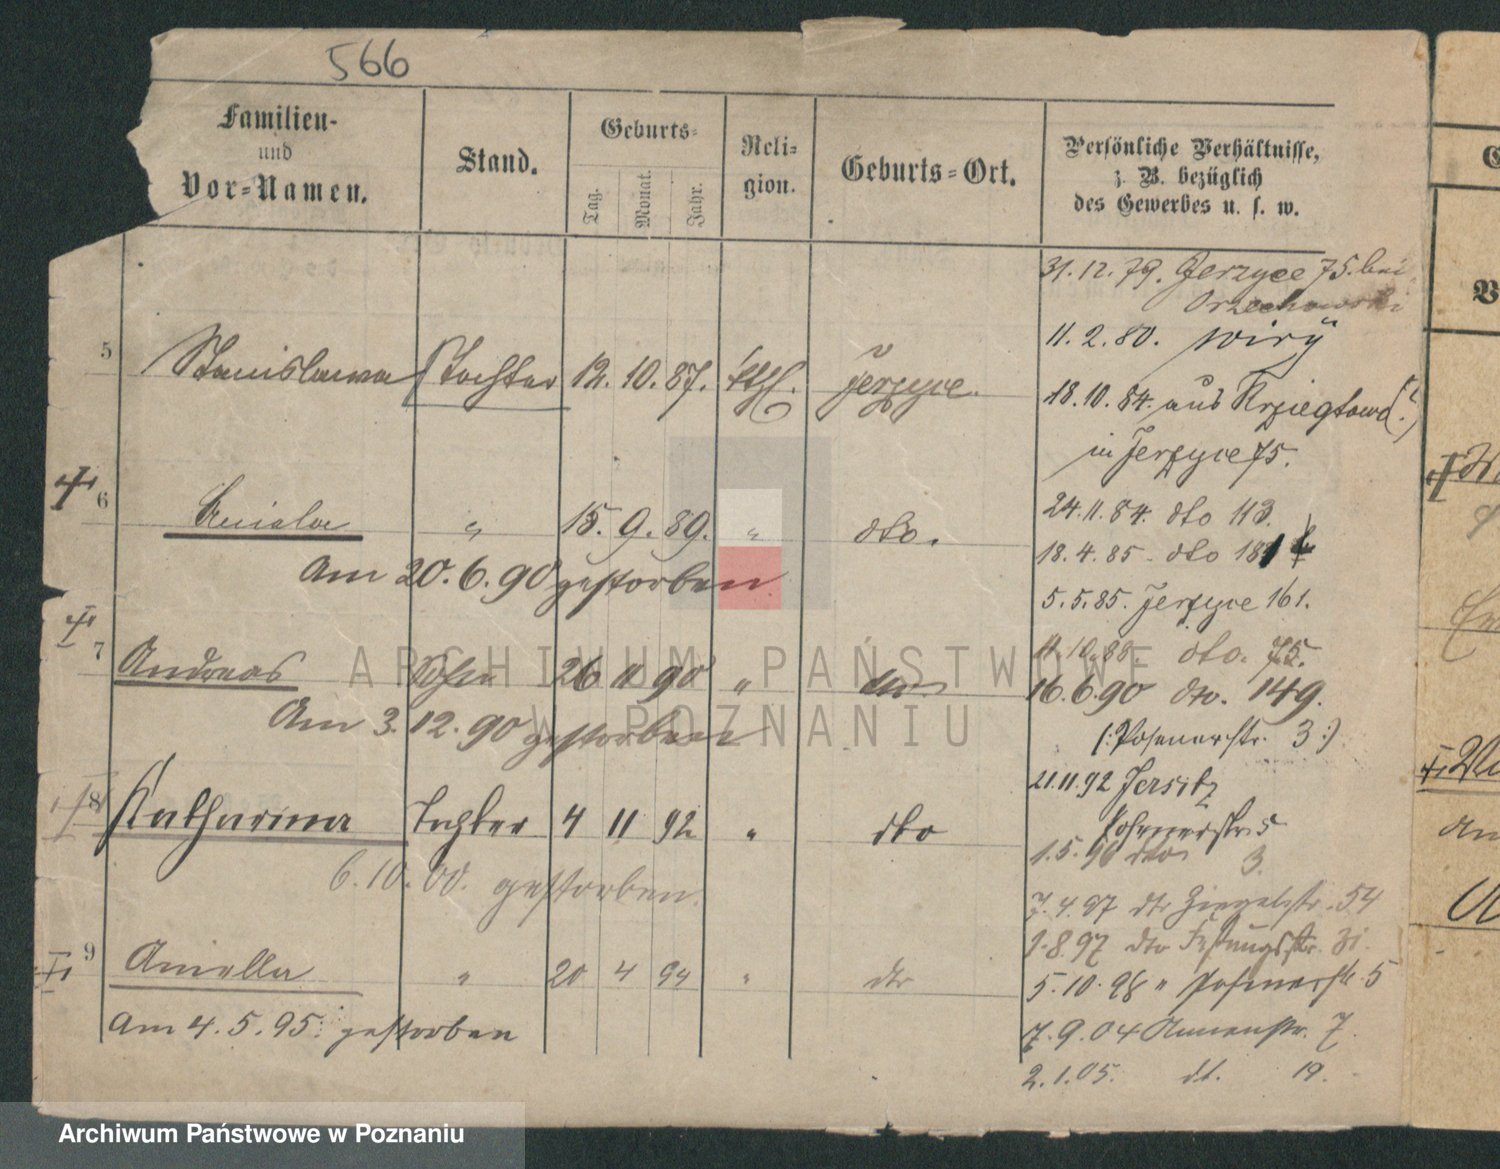 566
Familien-
und
Vor-Namen.
Stand.
Geburts-
Tag.
Monat.
Jahr.
Reli-
gion.
Geburts-Ort.
Persönliche Verhältnisse,
z. B. bezüglich
des Gewerbes u. s. w.
31.12.79. Jerzyce 75. bei
Orzechowski
11.2.80. Wiry
5 Stanislawa Tochter 12. 10. 87. kth. Jerzyce.
18.10.84. aus
in Jerzyce 75.
24.11.84. dto 113.
6 15. 9. 89. " dto.
18.4.85 - dto
Am 20.6.90 gestorben
5.5.85. Jerzyce 161.
dto. 75.
7 Andreas Sohn 26 11 90 " dto
16.6.90 dto. 149.
Am 3.12.90 gestorben
(: Posenerstr. 3 :)
21.11.92 Jersitz
8 Katharina Tochter 4 11 92 " dto
Posenerstr. 5
1.5.96 dto 3.
6.10.00. gestorben.
7.4.97 dto Ziegelstr. 54
1.8.97 dto Festungsstr. 31.
9 " 20 4 94 " dto
5.10.98 " Posenerstr. 5
Am 4.5.95. gestorben
7.9.04 Annenstr. 7.
2.1.05. dt. 19.
ARCHIWUM PAŃSTWOWE
W POZNANIU
Archiwum Państwowe w Poznaniu